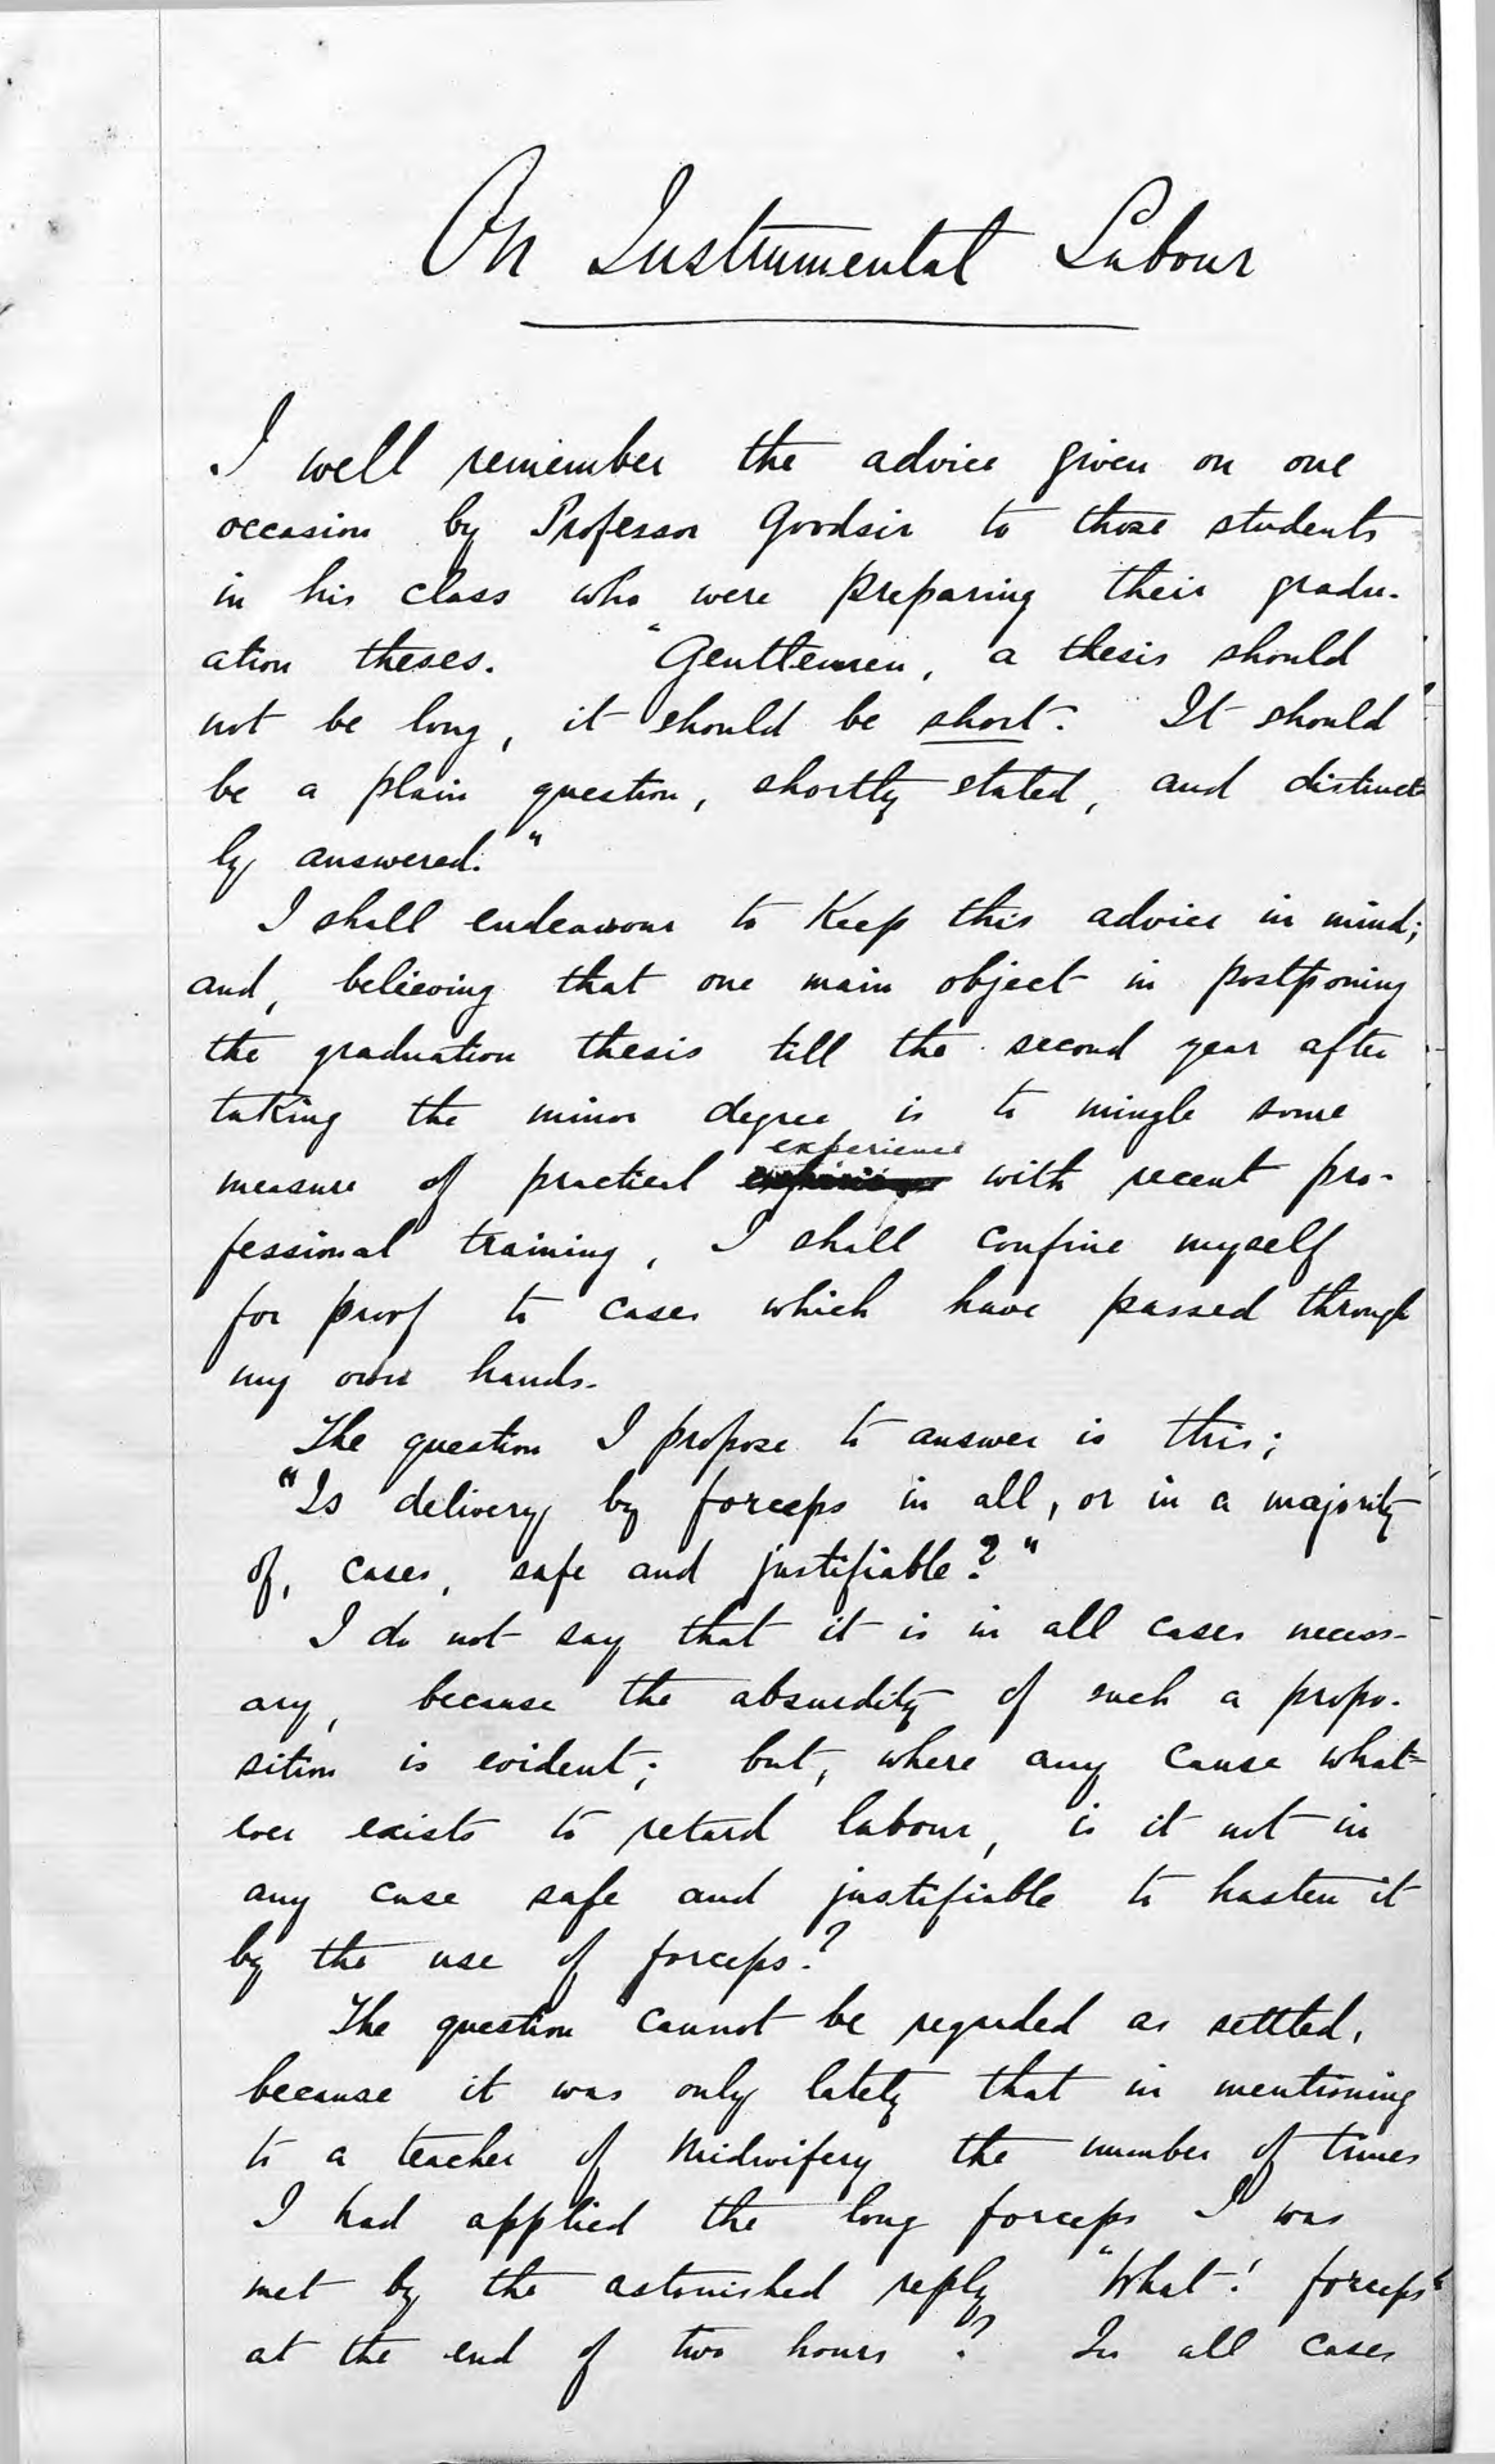 On Instrumental Labour
I well remember the advice given on one
occasion by Professor Goodsir to those students
in his class who were preparing their gradu-
ation theses. "Gentlemen, a thesis should
not be long, it should be short. It should
be a plain question, shortly stated, and distinct-
ly answered."
I shall endeavour to keep this advice in mind;
and, believing that one main object in postponing
the graduation thesis till the second year after
taking the minor degree is to mingle some
experience
measure of practical with recent pro-
fessional training, I shall confine myself
for proof to cases which have passed through
my own hands.
The question I propose to answer is this;
"Is delivery by forceps in all, or in a majority
of, cases, safe and justifiable?"
I do not say that it is in all cases necess-
ary, because the absurdity of such a propo-
sition is evident; but, where any cause what-
ever exists to retard labour, is it not in
any case safe and justifiable to hasten it
by the use of forceps?
The question cannot be regarded as settled,
because it was only lately that in mentioning
to a teacher of Midwifery the number of times
I had applied the long forceps I was
met by the astonished reply "What! forceps"
at the end of two hours? In all cases